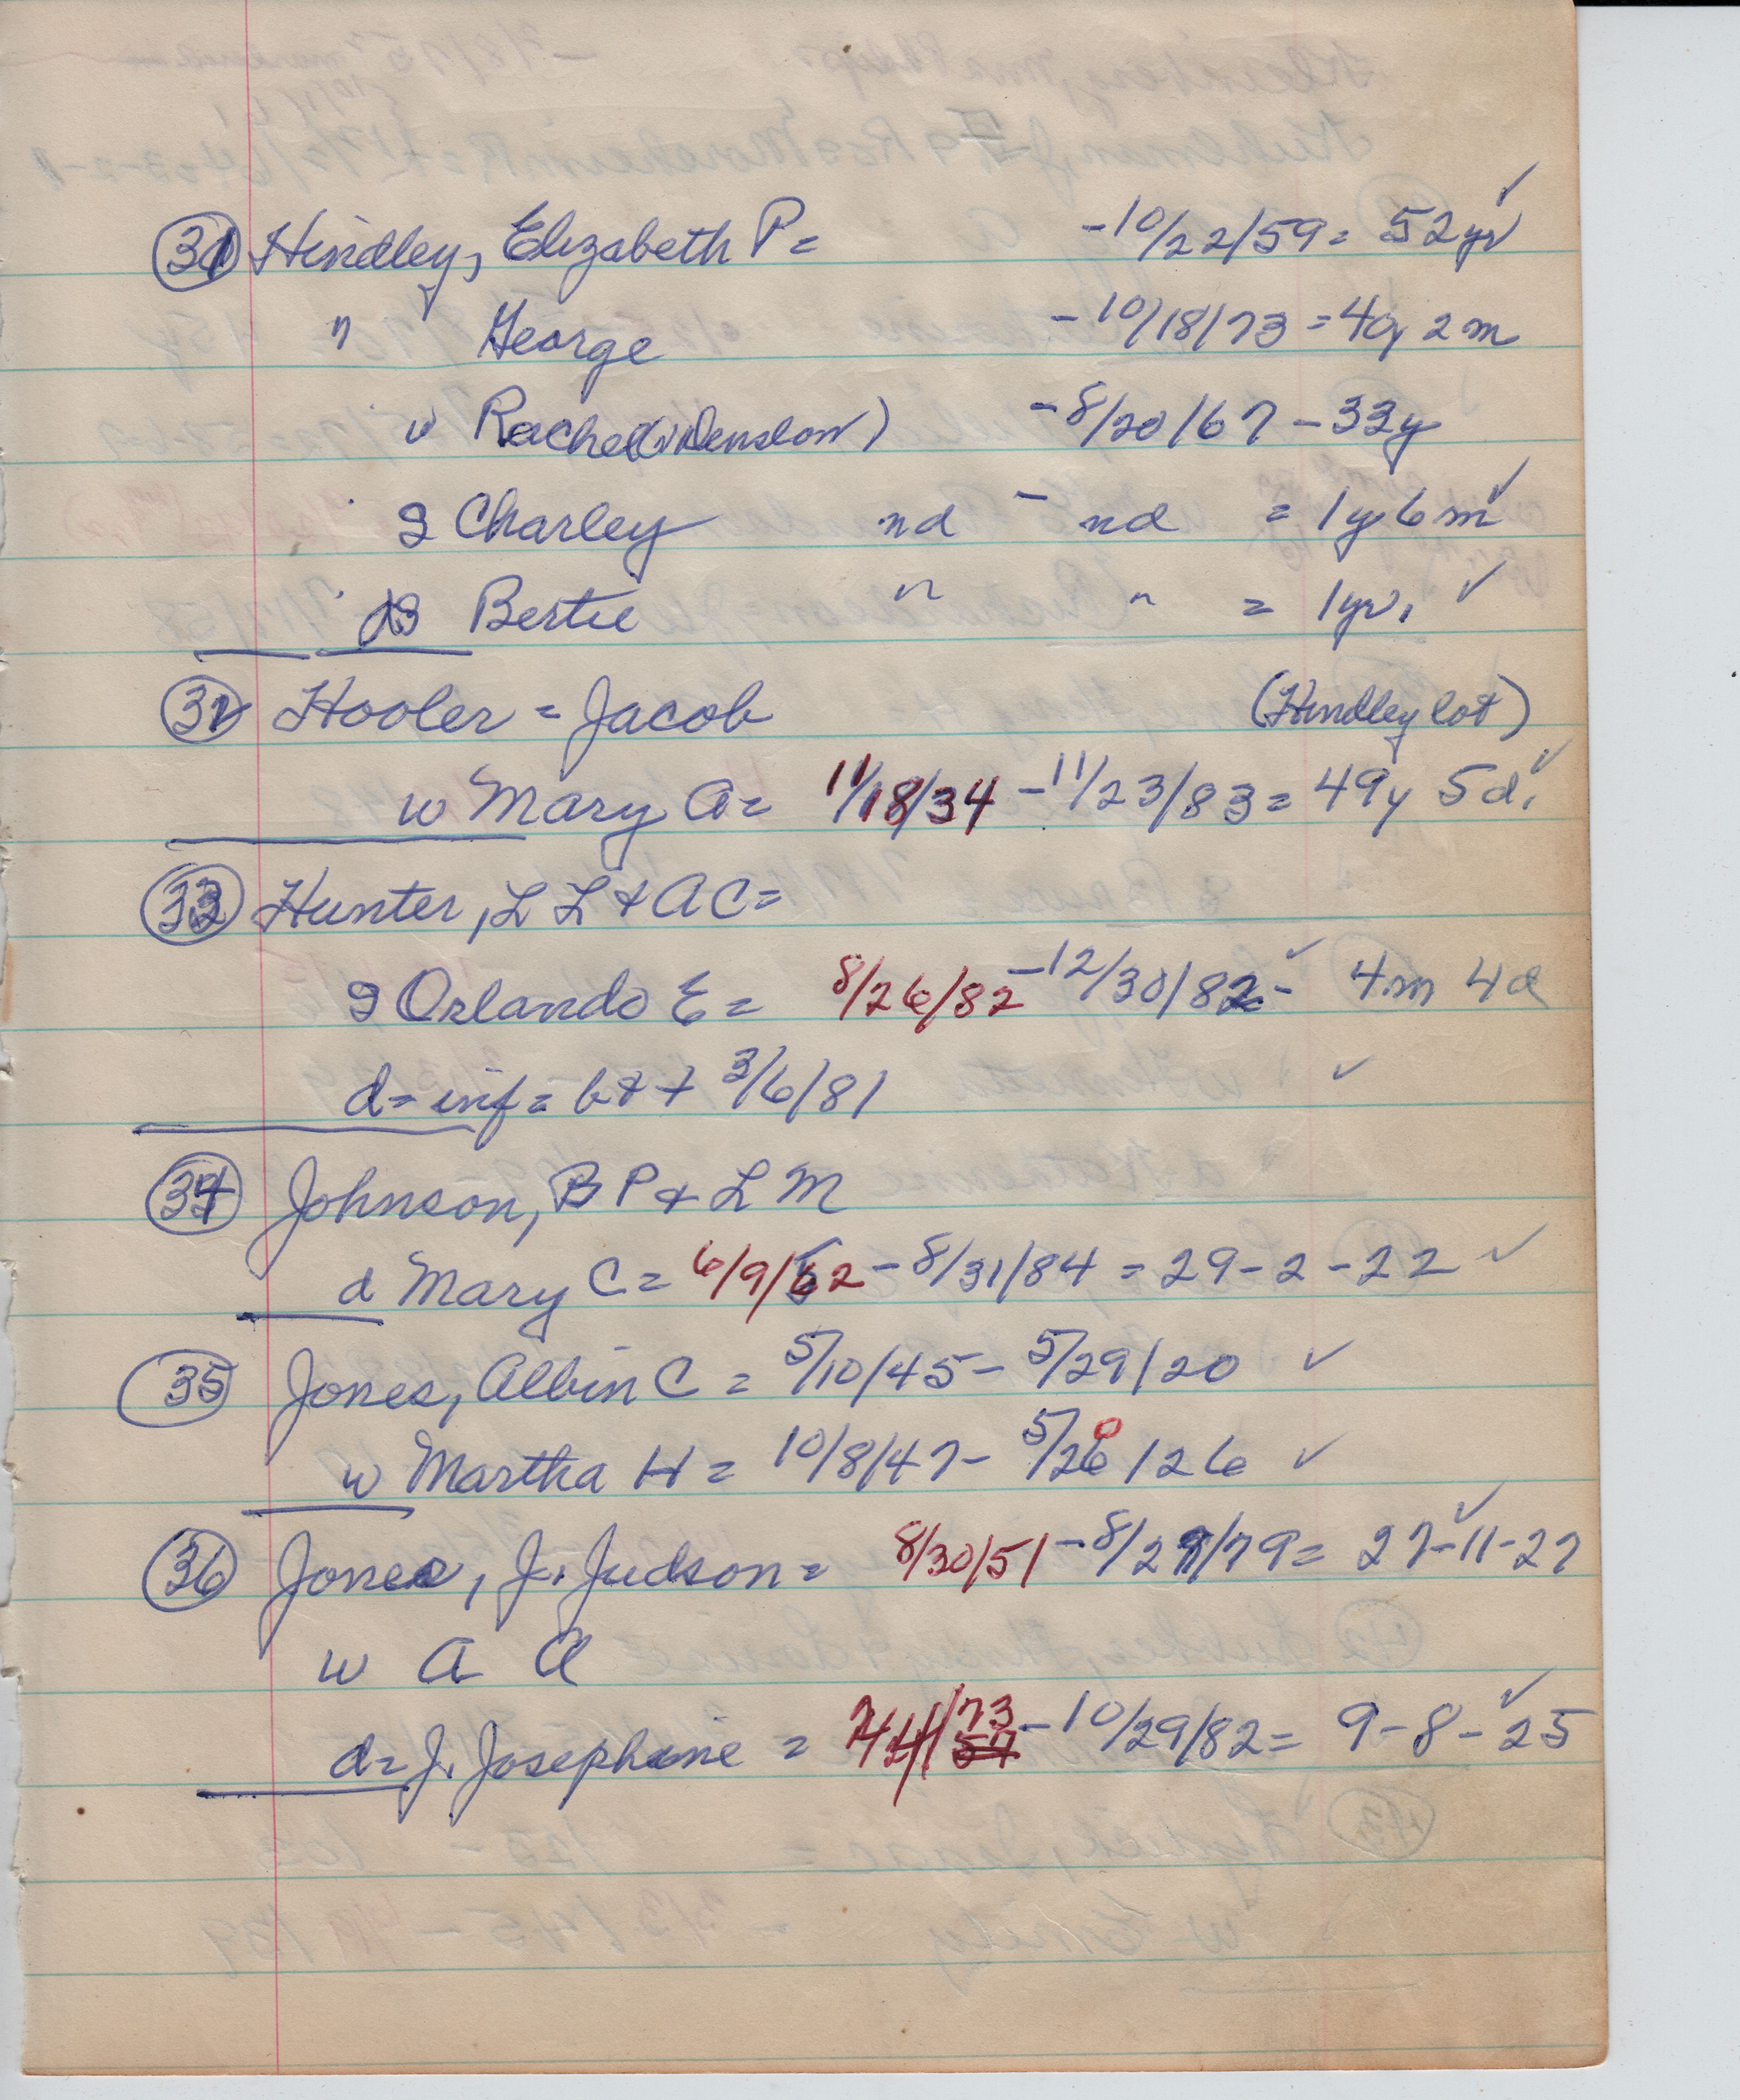 (31) Hindley, Elizabeth P= -10/22/59= 52yr ✓
" George -10/18/73=4y 2m
w Rachel (Denslow) -8/20/67-33y
s Charley nd - nd = 1y 6m ✓
ds Bertie " " = 1yr. ✓
(32) Hooler = Jacob (Hindley lot)
w Mary A= 11/18/34 -11/23/83= 49y 5d. ✓
(33) Hunter, L L & A C=
s Orlando E= 8/26/82 -12/30/82- ✓ 4m 4d
d= inf= b&+ 3/6/81 ✓
(34) Johnson, B P & L M
d Mary C= 6/9/2 -8/31/84 = 29-2-22 ✓
(35) Jones, Albin C = 5/10/45- 5/29/20 ✓
w Martha H= 10/8/47- 5/20/26 ✓
(36) Jones, J. Judson= 8/30/51 -8/2/79= 27-11-27 ✓
w A A
d=J. Josephine = /73 -10/29/82= 9-8-25 ✓